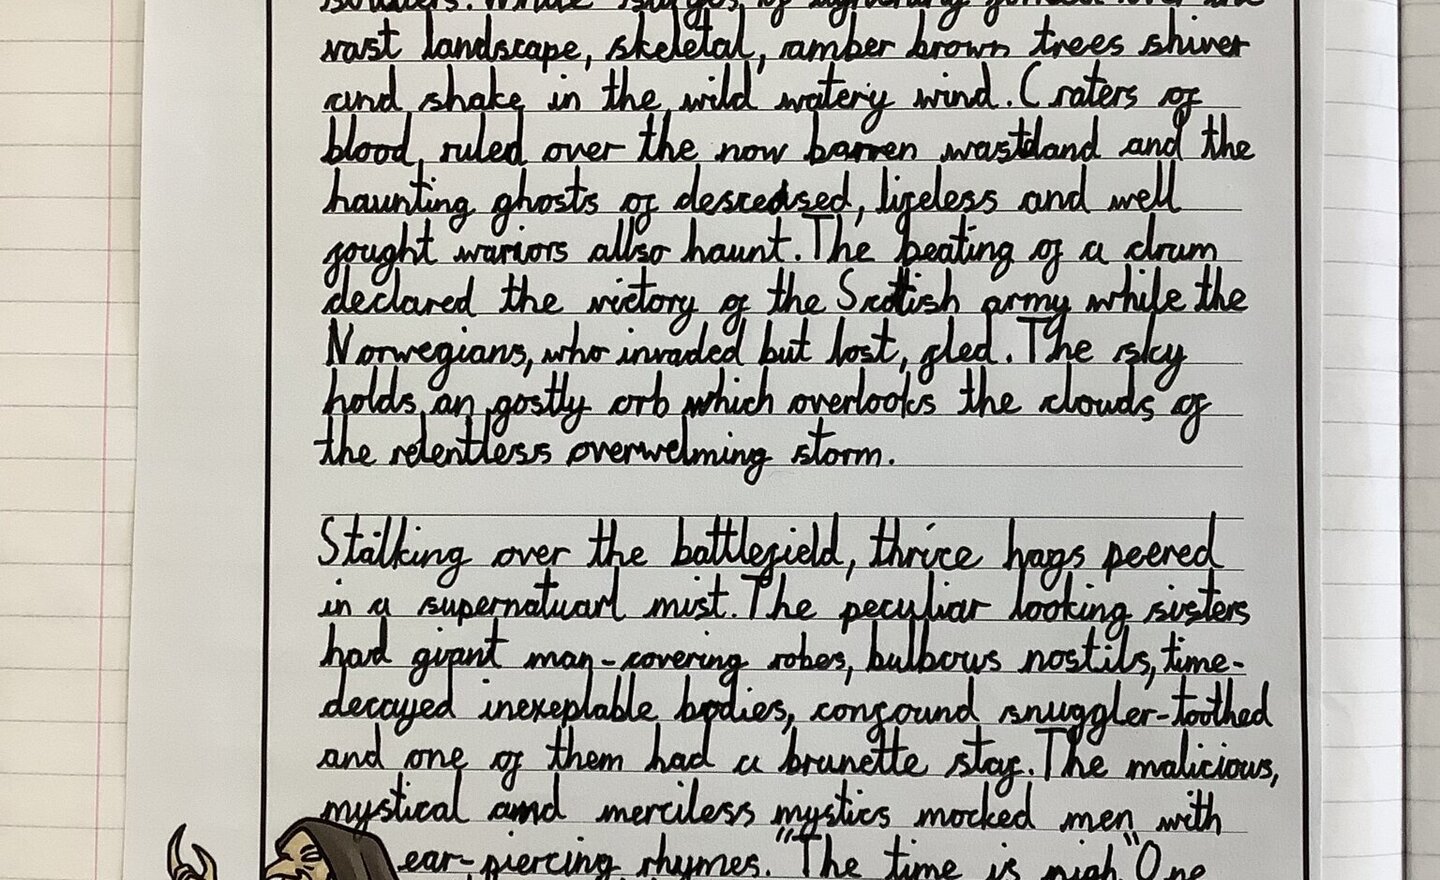 vast landscape, skeletal, amber brown trees shiver
and shake in the wild watery wind. Craters of
blood ruled over the now barren wasteland and the
haunting ghosts of desceased, lifeless and well
fought wariors allso haunt. The beating of a drum
declared the victory of the Scottish army while the
Norwegians, who invaded but lost, fled. The sky
holds an gostly orb which overlooks the clouds of
the relentless overwelming storm.
Stalking over the battlefield, thrice hags peered
in a supernatuarl mist. The peculiar looking sisters
had giant man-covering robes, bulbous nostils, time-
decayed inexeplable bodies, confound snuggler-toothed
and one of them had a brunette staf. The malicious,
mystical and merciless mystics mocked men with
ear-piercing rhymes. "The time is nigh" One